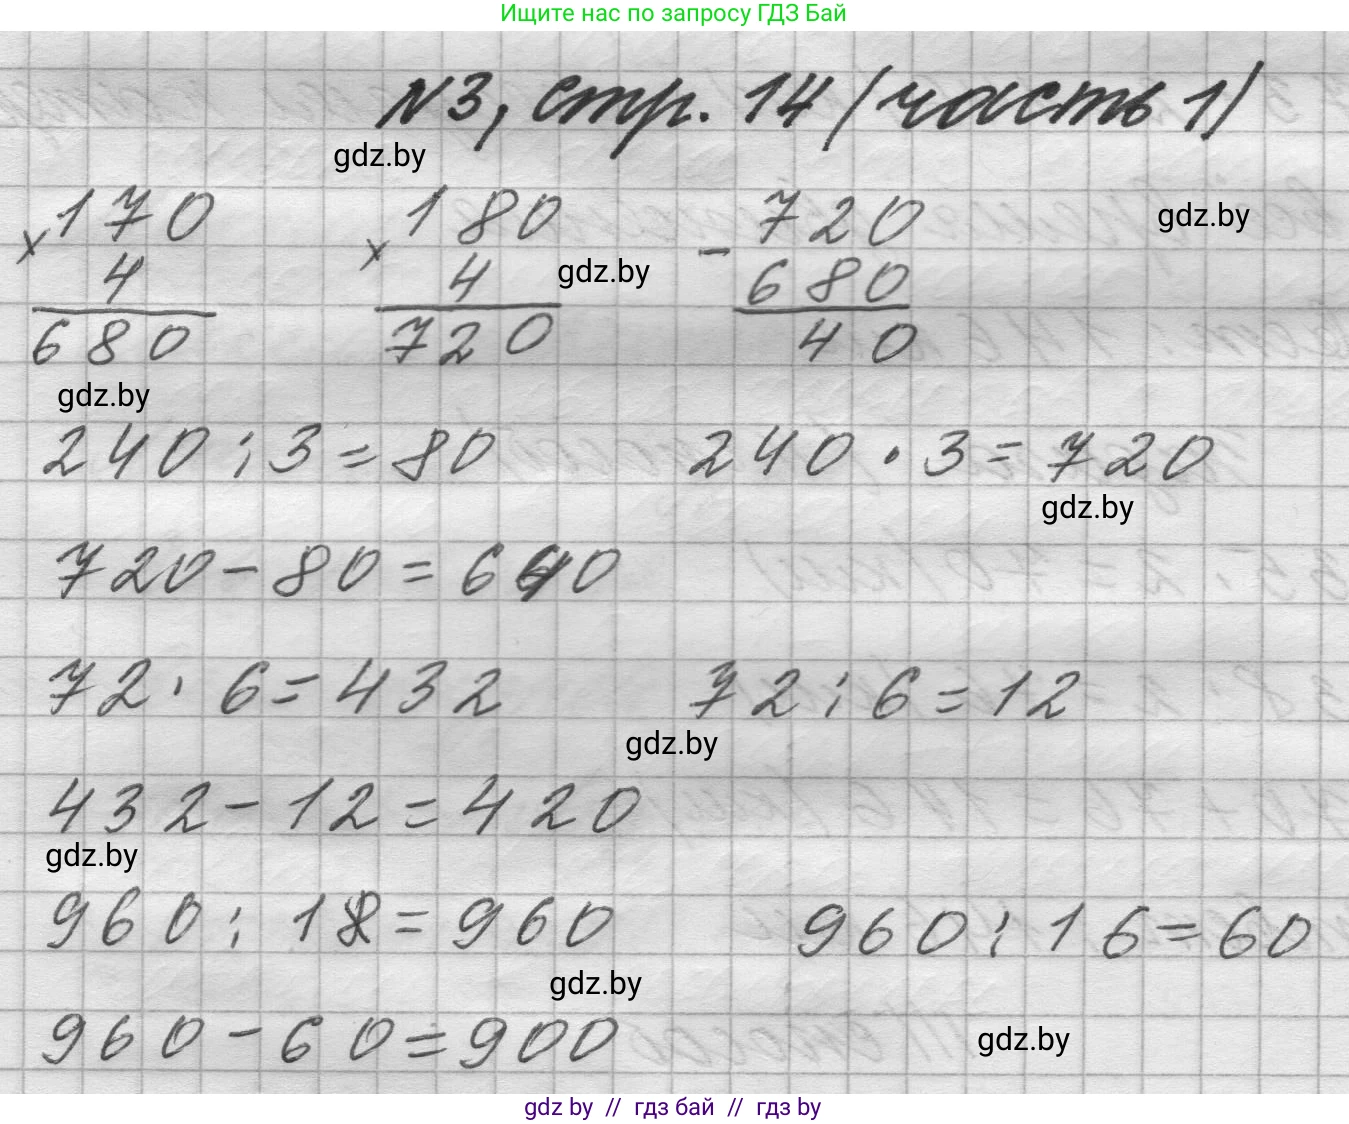 Ищите нас по запросу ГДЗ Бай
№3, стр. 14 (часть 1)
gdz.by
170 180 720
gdz.by
× 4 × 4 - 680
gdz.by
680 720 40
gdz.by
240 : 3 = 80 240 · 3 = 720
gdz.by
720 - 80 = 640
72 · 6 = 432 72 : 6 = 12
gdz.by
432 - 12 = 420
gdz.by
960 : 1 = 960 960 : 16 = 60
gdz.by
960 - 60 = 900
gdz.by
gdz by // гдз бай // гдз by